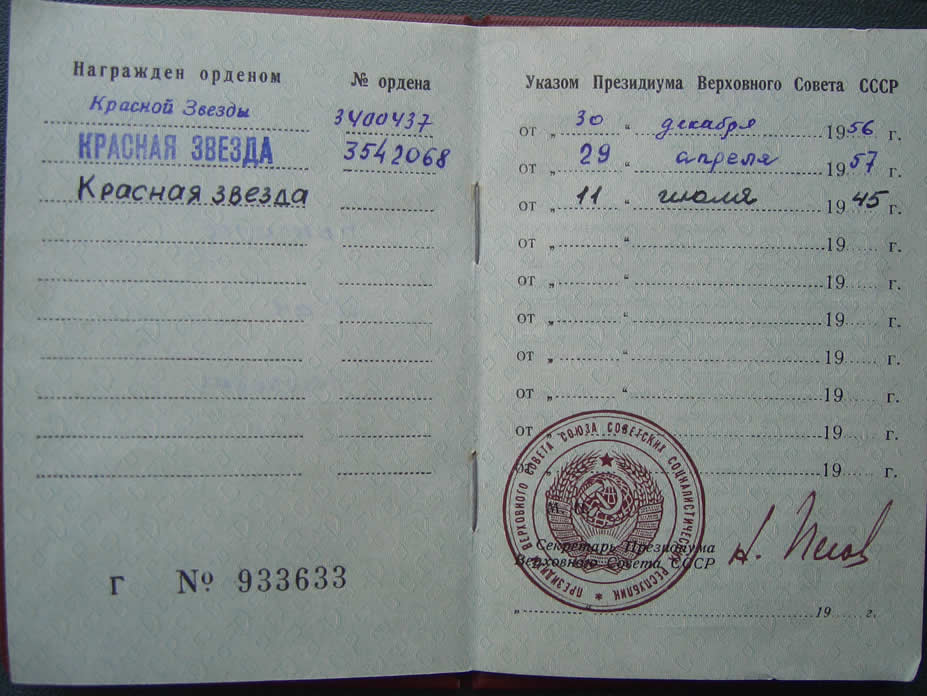 Награжден орденом № ордена
Красной Звезды 3400437
КРАСНАЯ ЗВЕЗДА 3542068
Красная звезда
Г № 933633
Указом Президиума Верховного Совета СССР
от „ 30 “ декабря 1956 г.
от „ 29 “ апреля 1957 г.
от „ 11 “ июля 1945 г.
от „ “ 19 г.
от „ “ 19 г.
от „ “ 19 г.
от „ “ 19 г.
от „ “ 19 г.
от „ 19 г.
от „ 19 г.
ПРЕЗИДИУМ ВЕРХОВНОГО СОВЕТА СОЮЗА СОВЕТСКИХ СОЦИАЛИСТИЧЕСКИХ РЕСПУБЛИК
М.
Секретарь Президиума
Верховного Совета СССР
„ “ 19 г.